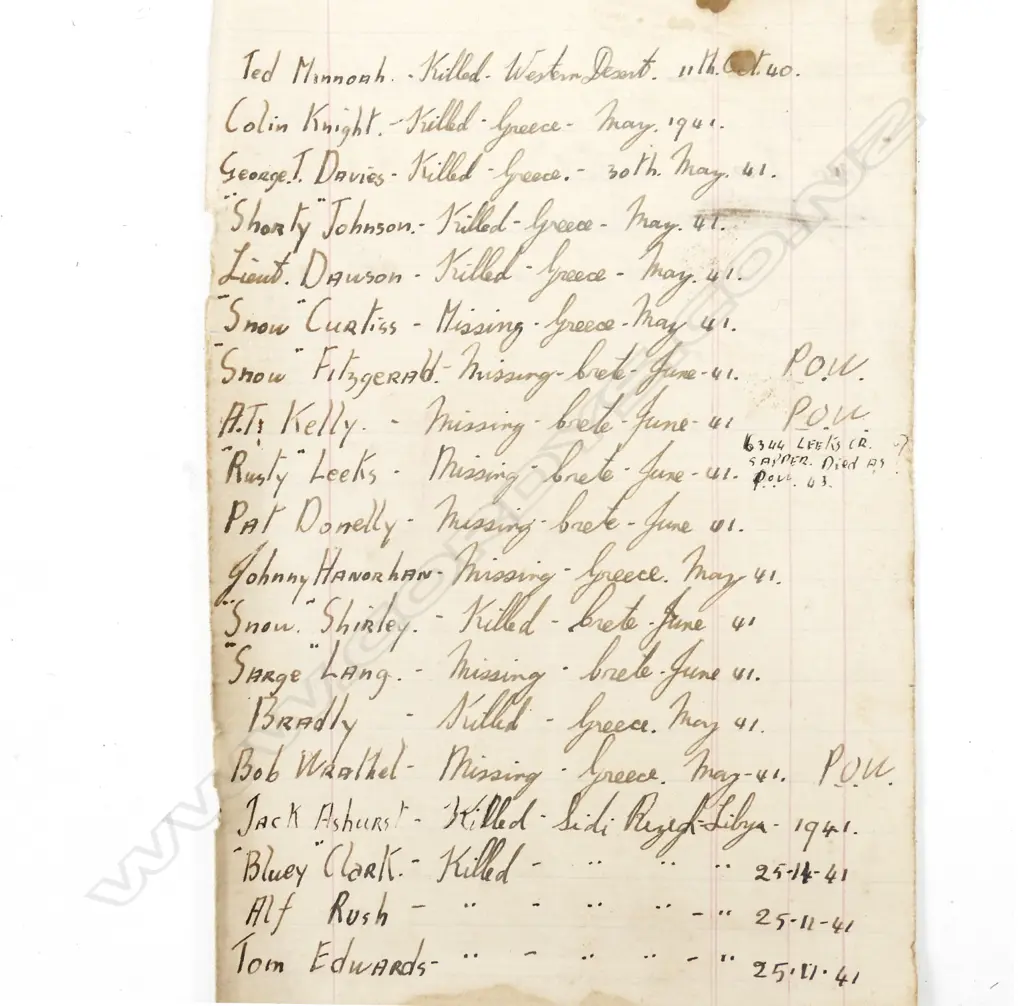 Ted Minnoah. - Killed - Western Desert. 11th. Oct. 40.
Colin Knight. - Killed - Greece - May. 1941.
George. T. Davies - Killed - Greece. - 30th. May. 41.
"Shorty" Johnson. - Killed - Greece - May. 41.
Lieut. Dawson - Killed - Greece - May. 41.
"Snow" Curtiss - Missing - Greece - May 41.
"Snow" Fitzgerald. - Missing - Crete - June - 41. P.O.W.
A.T. Kelly. - Missing - Crete - June - 41 P.O.W.
"Rusty" Leeks - Missing - Crete - June - 41. 6344 LEEKS CR.
SAPPER. Died As
P.O.W. 43.
Pat Donelly - Missing - Crete - June 41.
Johnny Hanorhan - Missing - Greece. May 41.
"Snow." Shirley. - Killed - Crete - June 41
"Sarge" Lang. - Missing - Crete - June 41.
Bradly - Killed - Greece. May 41.
Bob Wrathel - Missing - Greece. May - 41. P.O.W.
Jack Ashurst - Killed - Sidi Rezegh - Libya - 1941.
"Bluey" Clark. - Killed - " " " 25-11-41
Alf Rush - " - " " - " 25-11-41
Tom Edwards - " - " " - " 25.11.41
WWW.CORDYS.CO.NZ